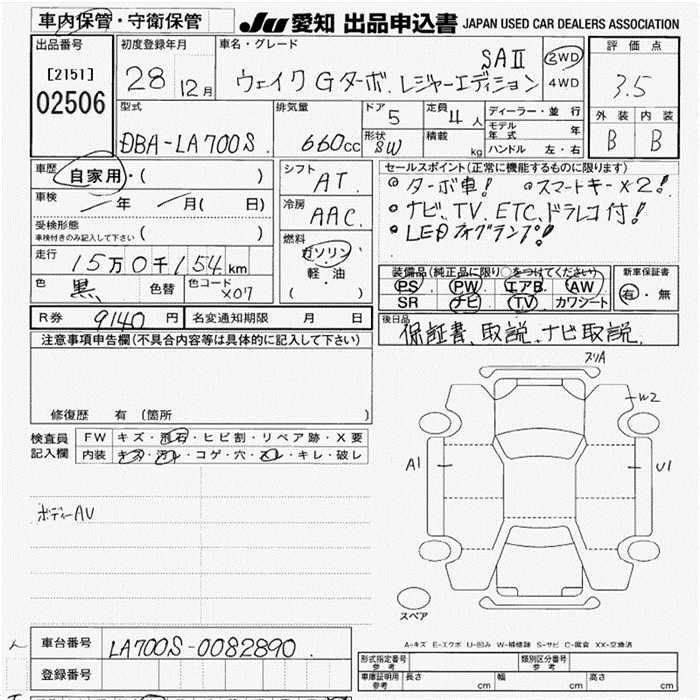 車内保管・守衛保管 JU 愛知 出品申込書 JAPAN USED CAR DEALERS ASSOCIATION
出品番号 [2151] 02506
初度登録年月 28 12月
車名・グレード SAII
ウェイク Gターボ.レジャーエディション
2WD
4WD
評価点 3.5
外装 内装
B B
型式 DBA-LA700S
排気量 660cc
ドア 5 定員 4人
形状 SW 積載 kg
ディーラー・並行
モデル年式 年
ハンドル 左・右
車歴 自家用・( )
車検 年 月( 日)
受検形態 ( )
車検付きのみ記入して下さい
走行 15万0千154km
色 黒 色替 色コード X07
シフト AT
冷房 AAC
燃料 ガソリン
軽・油
( )
セールスポイント(正常に機能するものに限ります)
ターボ車! スマートキーx2!
ナビ、TV、ETC、ドラレコ付!
LEDフォグランプ!
装備品(純正品に限り○をつけてください)
PS PW エアB AW
SR ナビ TV カワシート
新車保証書
有・無
R券 9140円 名変通知期限 月 日
後日品 保証書、取説、ナビ取説
注意事項申告欄(不具合内容等は具体的に記入して下さい)
修復歴 有(箇所
検査員記入欄
FW キズ・飛石・ヒビ割・リペア跡・X要
内装 キズ・汚レ・コゲ・穴・スレ・キレ・破レ
ボディーAU
スリA
W2
A1
U1
スペア
A-キズ E-エクボ U-凹み W-補修跡 S-サビ C-腐食 XX-交換済
車台番号 LA700S-0082890
登録番号
形式指定番号 参考 類別区分番号 参考
車庫証明用 参考 長さ cm 幅 cm 高さ cm